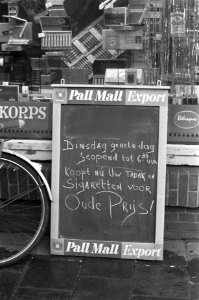 Pall Mall Export
KORPS
Dinsdag gehele dag
geopend tot 6 uur
Koopt NU Uw TABAK en
Sigaretten voor
Oude Prijs!
Pall Mall Export